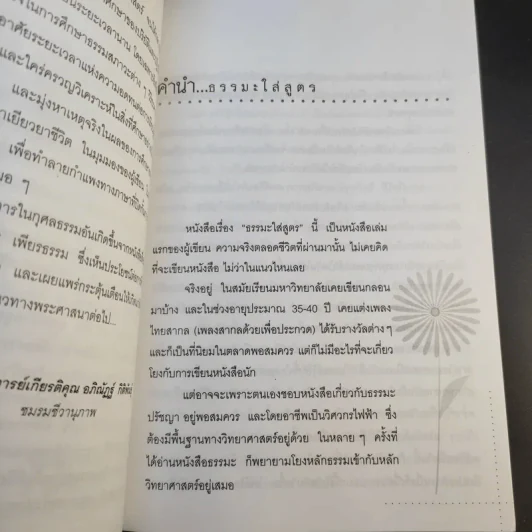 ในการศึกษาธรรมสภาวะต่าง ๆ
อาศัยระยะเวลาแห่งความอดทนต่อการ
และใคร่ครวญวิเคราะห์ในสิ่งที่ศึกษา
และมุ่งหาเหตุจริงในผลของการ
เยียวยาชีวิต ในมุมมองของผู้เขียน
เพื่อทำลายกำแพงทางภาษาที่
เสมอ ๆ
การในกุศลธรรมอันเกิดขึ้นจากหนังสือ
เพียรธรรม ซึ่งเห็นประโยชน์
และเผยแพร่กระตุ้นเตือนให้
ทางพระศาสนาต่อไป...
อาจารย์เกียรติคุณ อภิณัฏฐ์
ชมรมชีวานุภาพ
คำนำ...ธรรมะใส่สูตร
หนังสือเรื่อง "ธรรมะใส่สูตร" นี้ เป็นหนังสือเล่ม
แรกของผู้เขียน ความจริงตลอดชีวิตที่ผ่านมานั้น ไม่เคยคิด
ที่จะเขียนหนังสือ ไม่ว่าในแนวไหนเลย
จริงอยู่ ในสมัยเรียนมหาวิทยาลัยเคยเขียนกลอน
มาบ้าง และในช่วงอายุประมาณ 35-40 ปี เคยแต่งเพลง
ไทยสากล (เพลงสากลด้วยเพื่อประกวด) ได้รับรางวัลต่างๆ
และก็เป็นที่นิยมในตลาดพอสมควร แต่ก็ไม่มีอะไรที่จะเกี่ยว
โยงกับการเขียนหนังสือนัก
แต่อาจจะเพราะตนเองชอบหนังสือเกี่ยวกับธรรมะ
ปรัชญา อยู่พอสมควร และโดยอาชีพเป็นวิศวกรไฟฟ้า ซึ่ง
ต้องมีพื้นฐานทางวิทยาศาสตร์อยู่ด้วย ในหลายๆ ครั้งที่
ได้อ่านหนังสือธรรมะ ก็พยายามโยงหลักธรรมเข้ากับหลัก
วิทยาศาสตร์อยู่เสมอ